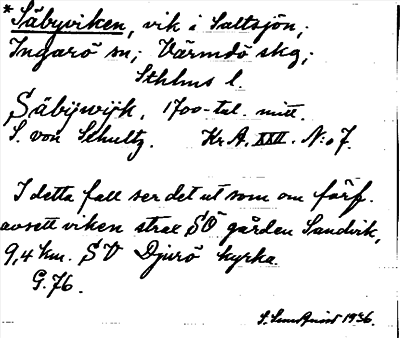 * Säbyviken, vik i Saltsjön;
Ingarö sn; Värmdö skg;
Sthlms l.
Säbijwijk, 1700-tal. mitt.
S. von Schultz. Kr. A. XXII. N:o 7.
I detta fall ser det ut som om förf.
avsett viken strax SO gården Sandvik,
9,4 km. SV Djurö kyrka
G. 76.
1936.